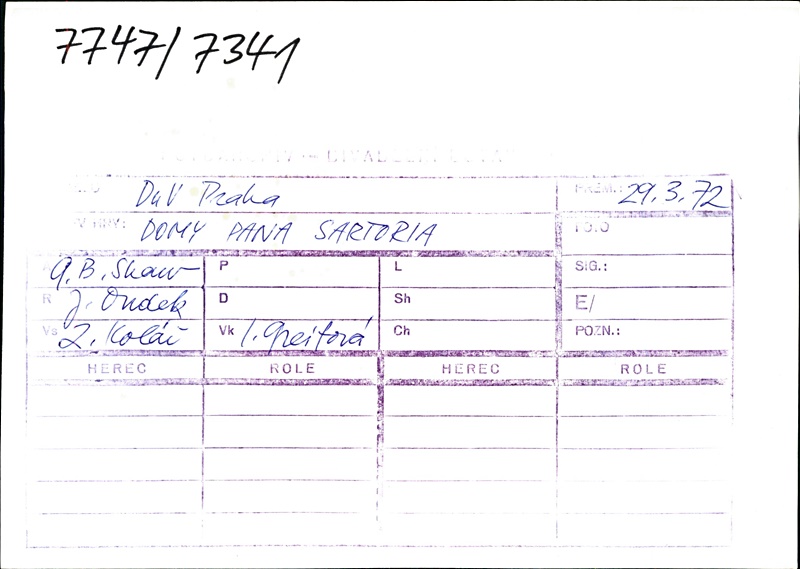 7747/7341
DIVADELNÍ ÚSTAV
DnV Praha PREM.: 29.3.72
DOMY PANA SARTORIA
G.B. Shaw P L SIG.:
R J. Ondek D Sh E/
Vs Z. Kolář Vk I. Greifová Ch POZN.:
HEREC ROLE HEREC ROLE